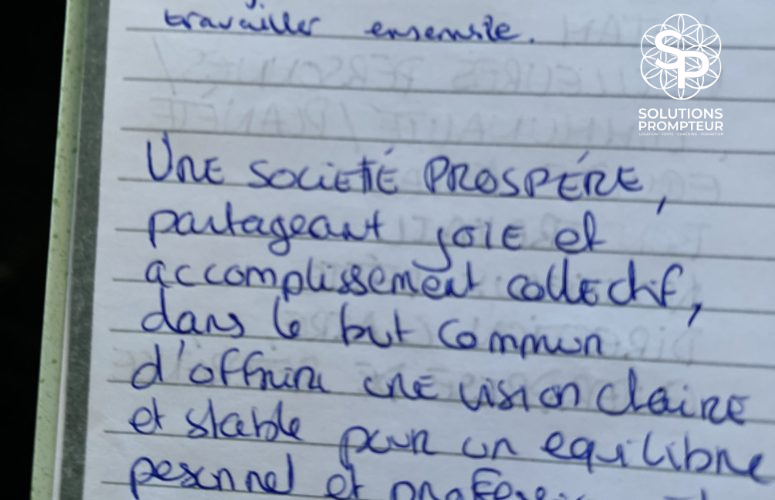 travailler ensemble.
SP
SOLUTIONS
PROMPTEUR
UNE SOCIETÉ PROSPÉRE,
partageant JOIE et
accomplissement collectif,
dans le but commun
d'offrir une vision claire
et stable pour un equilibre
personnel et